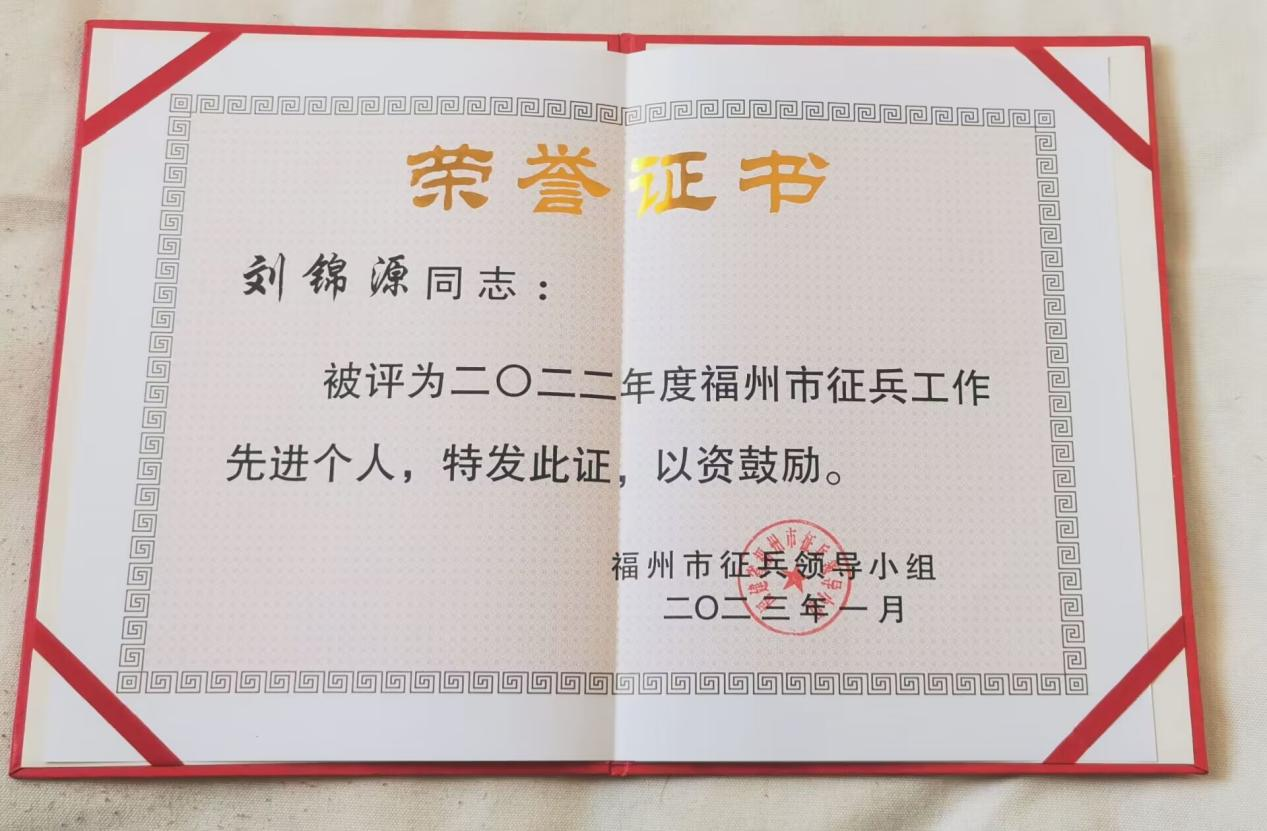 荣誉证书
刘锦源同志：
被评为二〇二二年度福州市征兵工作
先进个人，特发此证，以资鼓励。
福州市征兵领导小组
二〇二三年一月